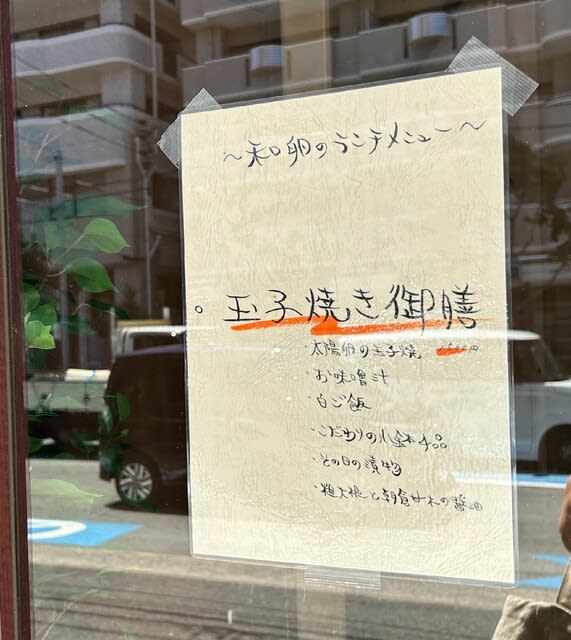 ～和卵のランチメニュー～
。玉子焼き御膳
・太陽卵の玉子焼
・お味噌汁
・白ご飯
・こだわりの小鉢4品
・その日の漬物
・粗大根と朝倉サンの醤油